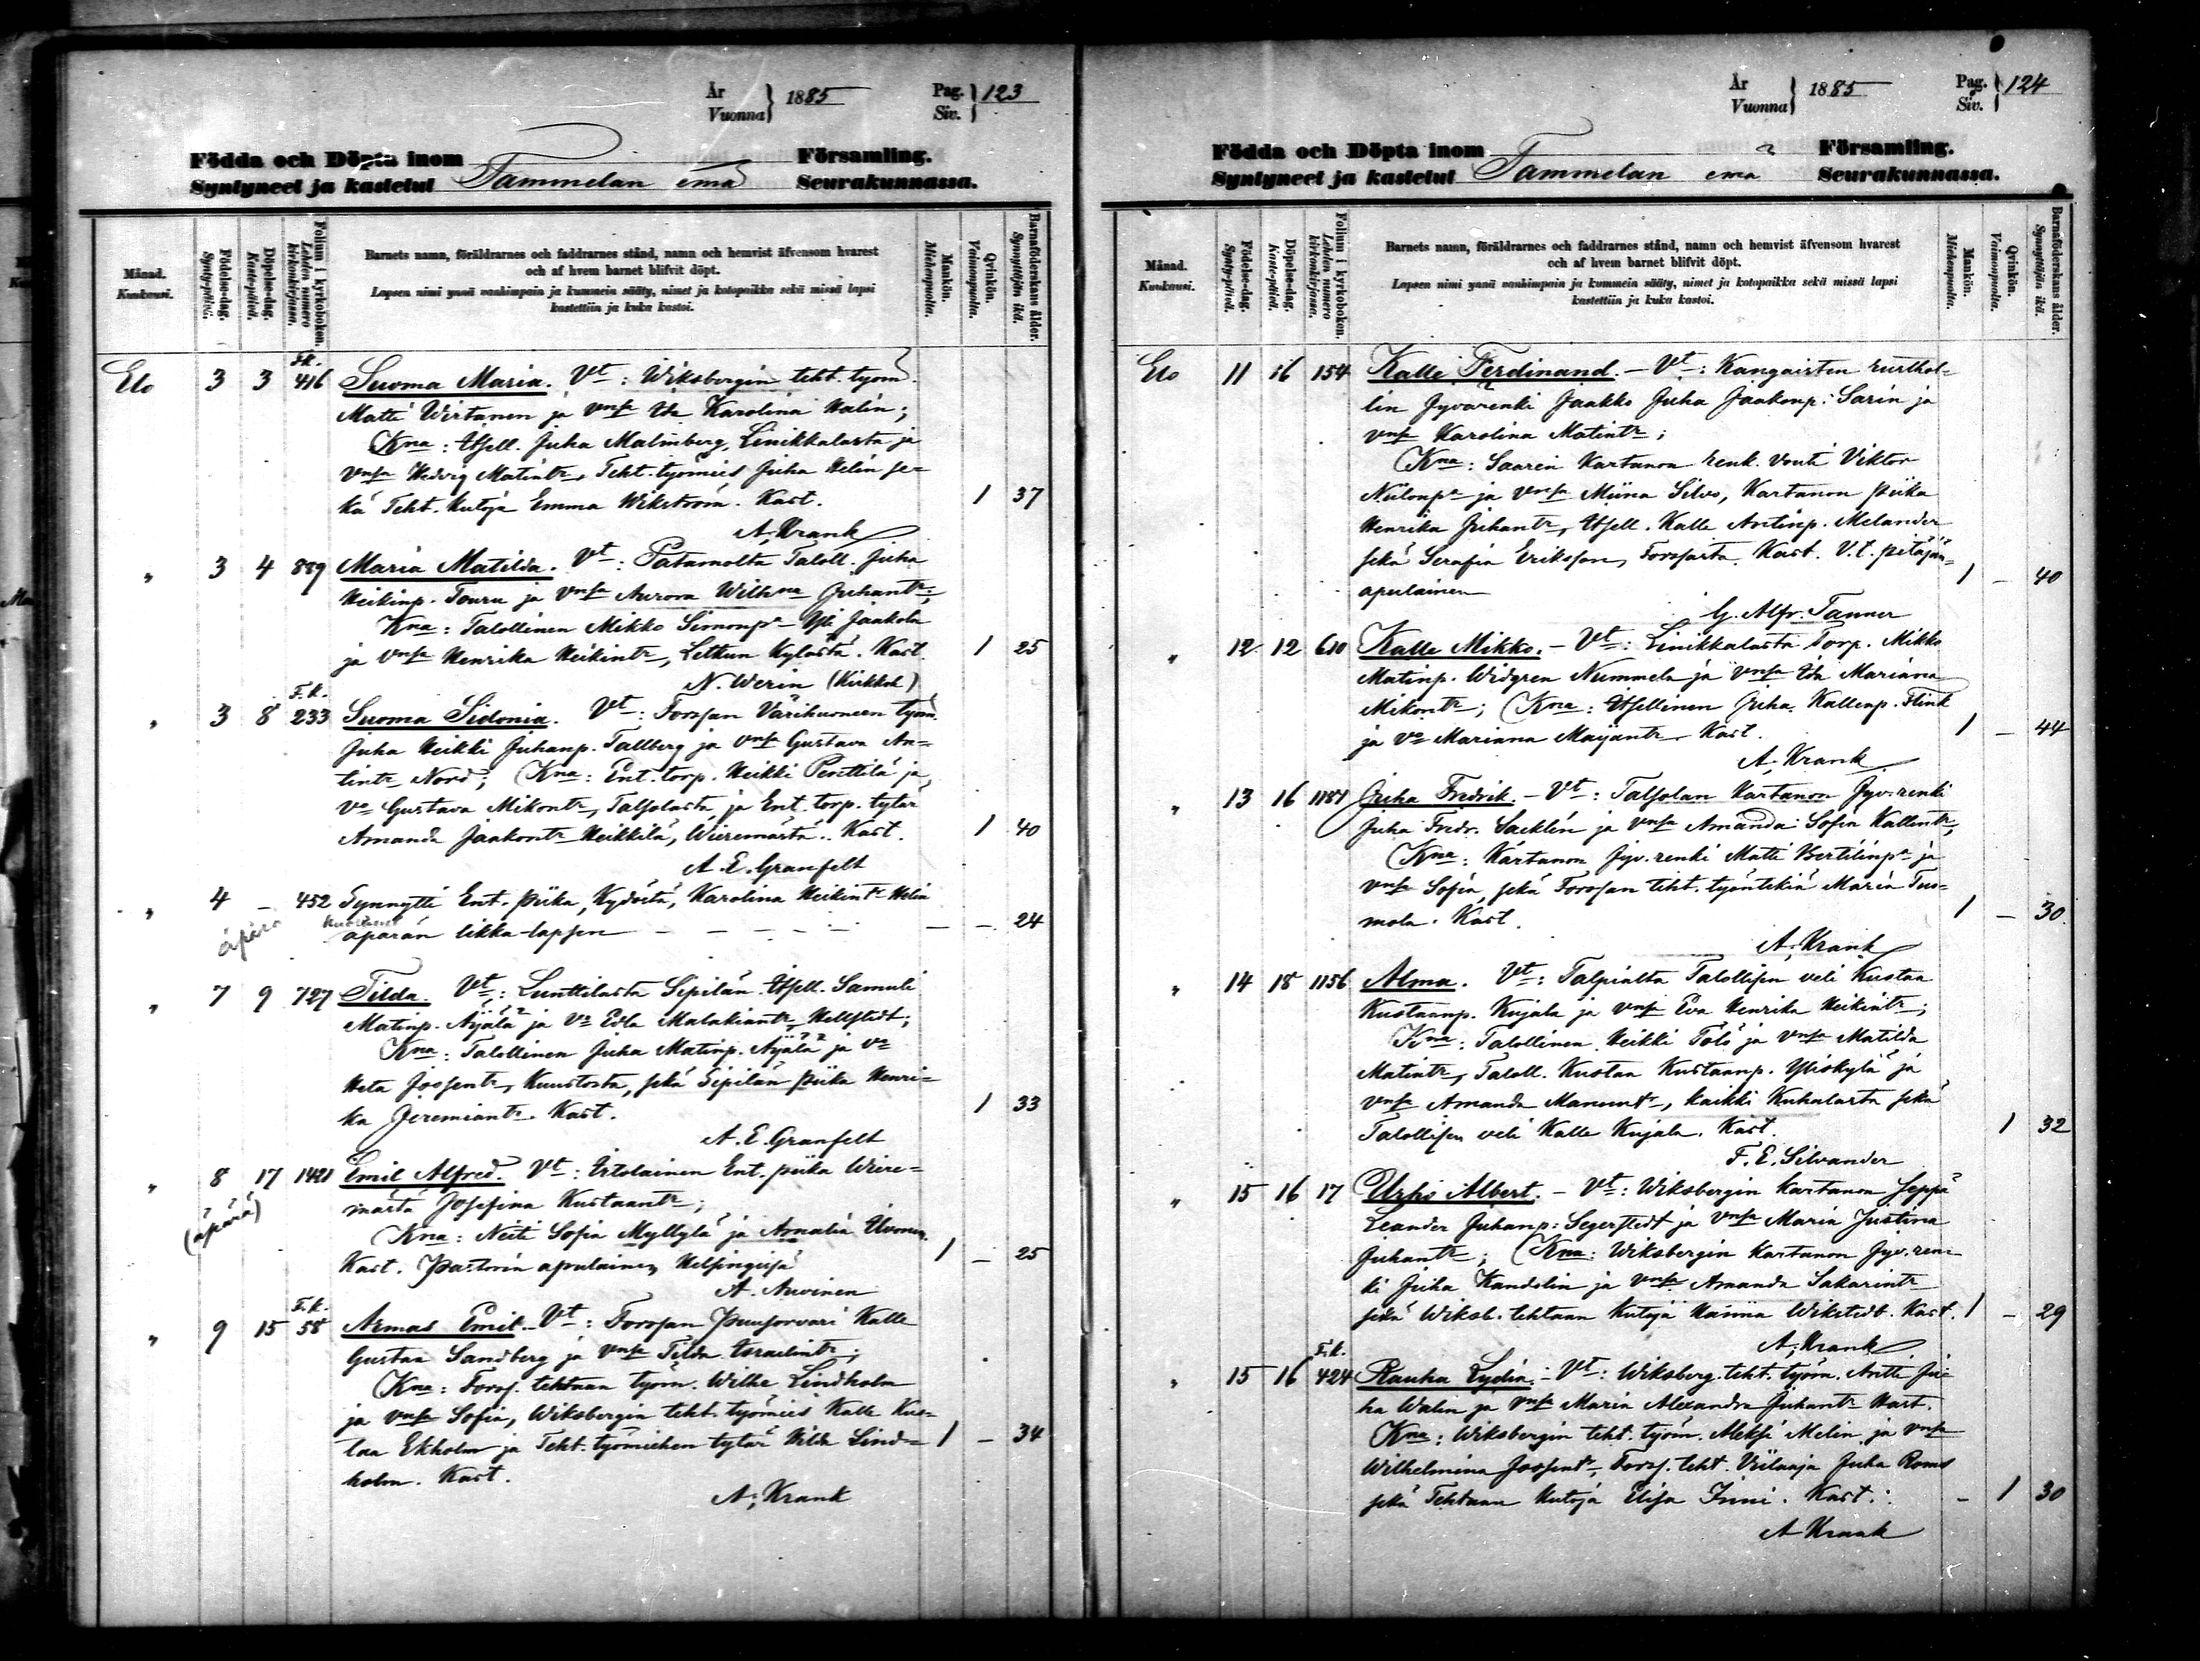 År
Vuonna } 1885
Pag.
Siv. } 123
Födda och Döpta inom
Syntyneet ja kastetut Tammelan emä
Församling.
Seurakunnassa.
Månad.
Kuukausi.
Födelse-dag.
Synty-päivä.
Döpelse-dag.
Kaste-päivä.
Folium i kyrkoboken.
Lehden numero kirkonkirjassa.
Barnets namn, föräldrarnes och faddrarnes stånd, namn och hemvist äfvensom hvarest
och af hvem barnet blifvit döpt.
Lapsen nimi ynnä vanhimpain ja kummein sääty, nimet ja kotopaikka sekä missä lapsi
kastettiin ja kuka kastoi.
Mankön.
Miehenpuolta.
Qvinkön.
Vaimonpuolta.
Barnaföderskans ålder.
Synnyttäjän ikä.
F.k.
Elo 3 3 416 Suoma Maria. Vt: Wiksbergin teht. työm.
Matti Wirtanen ja vmsa Ida Karolina Malin;
Kna: Itsell. Juha Malmberg, Linikkalasta ja
vmsa Hedvig Matintr, Teht. työmies Juha Helin se-
kä Teht. kutoja Emma Wikström. Kast. 1 37
A. Krank
" 3 4 889 Maria Matilda. Vt: Patamolta Taloll. Juha
Heikinp. Touru ja vmsa Aurora Wilhna Juhantr;
Kna: Talollinen Mikko Simonp Yli Jaakola
ja vmsa Henrika Heikintr, Letkun kylästä. Kast. 1 25
N. Werin (Kirkkoh)
F.k.
" 3 8 233 Suoma Sidonia. Vt: Forssan Värihuoneen työm.
Juha Heikki Juhanp. Tallberg ja vmsa Gustava An-
tintr Nord; Kna: Ent. torp. Heikki Penttilä ja
vo Gustava Mikontr, Talsolasta, ja Ent. torp. tytär
Amanda Jaakontr Heikkilä, Wieremästä. Kast. 1 40
A. E. Granfelt
" 4 – 452 Synnytti Ent. piika, Kydöstä, Karolina Heikintr Helin
äpärä kuolleen
äpärän likka-lapsen – – – – – – – 24
" 7 9 727 Tilda. Vt: Lunttilasta Sipilän Itsell. Samuli
Matinp. Äijälä ja vo Edla Malakiantr Hellstedt;
Kna: Talollinen Juha Matinp. Äijälä ja vo
Heta Joosentr, Kuustosta, sekä Sipilän piika Henri-
ka Jeremiantr. Kast. 1 33
A. E. Granfelt
" 8 17 1421 Emil Alfred. Vt: Irtolainen Ent. piika Wiere-
(äpärä)
mästä Josefina Kustaantr;
Kna: Neiti Sofia Myllylä ja Amalia
Kast. Pastorin apulainen Helsingissä 1 – 25
A. Auvinen
F.k.
" 9 15 58 Armas Emil. Vt: Forssan Puusorvari Kalle
Gustaa Sandberg ja vmsa Tilda Israelintr;
Kna: Forss. tehtaan työm. Wilhe Lindholm
ja vmsa Sofia, Wiksbergin teht. työmies Kalle Kus-
taa Ekholm ja Teht. työmiehen tytär Hilda Lind- 1 – 34
holm. Kast.
A. Krank
År
Vuonna } 1885
Pag.
Siv. } 124
Födda och Döpta inom
Syntyneet ja kastetut Tammelan emä
Församling.
Seurakunnassa.
Månad.
Kuukausi.
Födelse-dag.
Synty-päivä.
Döpelse-dag.
Kaste-päivä.
Folium i kyrkoboken.
Lehden numero kirkonkirjassa.
Barnets namn, föräldrarnes och faddrarnes stånd, namn och hemvist äfvensom hvarest
och af hvem barnet blifvit döpt.
Lapsen nimi ynnä vanhimpain ja kummein sääty, nimet ja kotopaikka sekä missä lapsi
kastettiin ja kuka kastoi.
Mankön.
Miehenpuolta.
Qvinkön.
Vaimonpuolta.
Barnaföderskans ålder.
Synnyttäjän ikä.
Elo 11 16 154 Kalle Ferdinand. – Vt: Kangaisten rusthol-
lin Jyvärenki Jaakko Juha Jaakonp. Sarin ja
vmsa Karolina Matintr;
Kna: Saaren Kartanon renk. vouti Viktor
Niilonp ja vmsa Miina Silvo, Kartanon piika
Henrika Juhantr, Itsell. Kalle Antinp. Melander
sekä Serafia Eriksson, Forssasta. Kast. V.t. pitäjän- 1 – 40
apulainen
G. Alfr. Tanner
" 12 12 610 Kalle Mikko. – Vt: Linikkalasta Torp. Mikko
Matinp. Widgren Nummela ja vmsa Ida Mariana
Mikontr; Kna: Itsellinen Juha Kallenp. Flink
ja vo Mariana Maijantr. Kast. 1 – 44
A. Krank
" 13 16 1181 Juha Fredrik. – Vt: Talsolan Kartanon Jyv. renki
Juha Fredr. Sacklén ja vmsa Amanda Sofia Kallentr,
Kna: Kartanon Jyv. renki Matti Bertilinp ja
vmsa Sofia, sekä Forssan teht. työntekiä Maria Tus-
mola. Kast. 1 – 30
A. Krank
" 14 18 1156 Alma. Vt: Talpialta Talollisen veli Kustaa
Kustaanp. Kujala ja vmsa Eva Henrika Heikintr;
Kna: Talollinen Heikki Tölö ja vmsa Matilda
Matintr, Taloll. Kustaa Kustaanp. Yliskylä ja
vmsa Amanda Manuntr, kaikki Kuhalasta sekä
Talollisen veli Kalle Kujala. Kast. 1 32
F. E. Silvander
" 15 16 17 Urho Albert. – Vt: Wiksbergin Kartanon Seppä
Leander Juhanp: Segerstedt ja vmsa Maria Justina
Juhantr; Kna: Wiksbergin Kartanon Jyv. ren-
ki Juha Kandelin ja vmsa Amanda Sakarintr
sekä Wiksb. tehtaan Kutoja Hanna Wikstedt. Kast. 1 – 29
A. Krank
F.k.
" 15 16 424 Rauha Lydia. – Vt: Wiksberg. teht. työm. Antti Ju-
ha Walin ja vmsa Maria Alexandra Juhantr Hart.
Kna: Wiksbergin teht. työm. Aleksi Melin ja vmsa
Wilhelmina Joosentr, Forss. teht. Viilaaja Juha Roms
sekä Tehtaan Kutoja Elisa Inni. Kast. – 1 30
A Krank